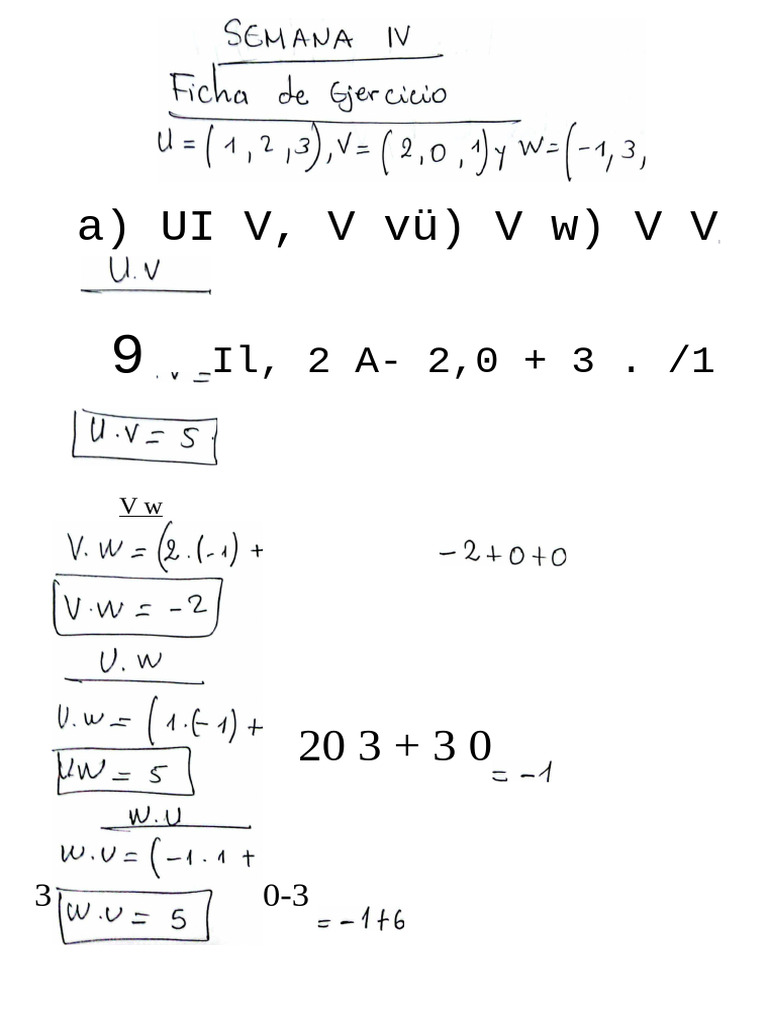 SEMANA IV
Ficha de Ejercicio
U = (1, 2, 3), V = (2, 0, 1) y W = (-1, 3,
a) UI V, V vü) V w) V V
U.V
9 . v = Il, 2 A- 2,0 + 3 . /1
U.V = 5
V w
V.W = (2.(-1) + -2+0+0
V.W = -2
U.W
U.W = (1.(-1) + 20 3 + 3 0 = -1
UW = 5
W.U
W.U = (-1.1 +
3 W.U = 5 0-3 = -1+6